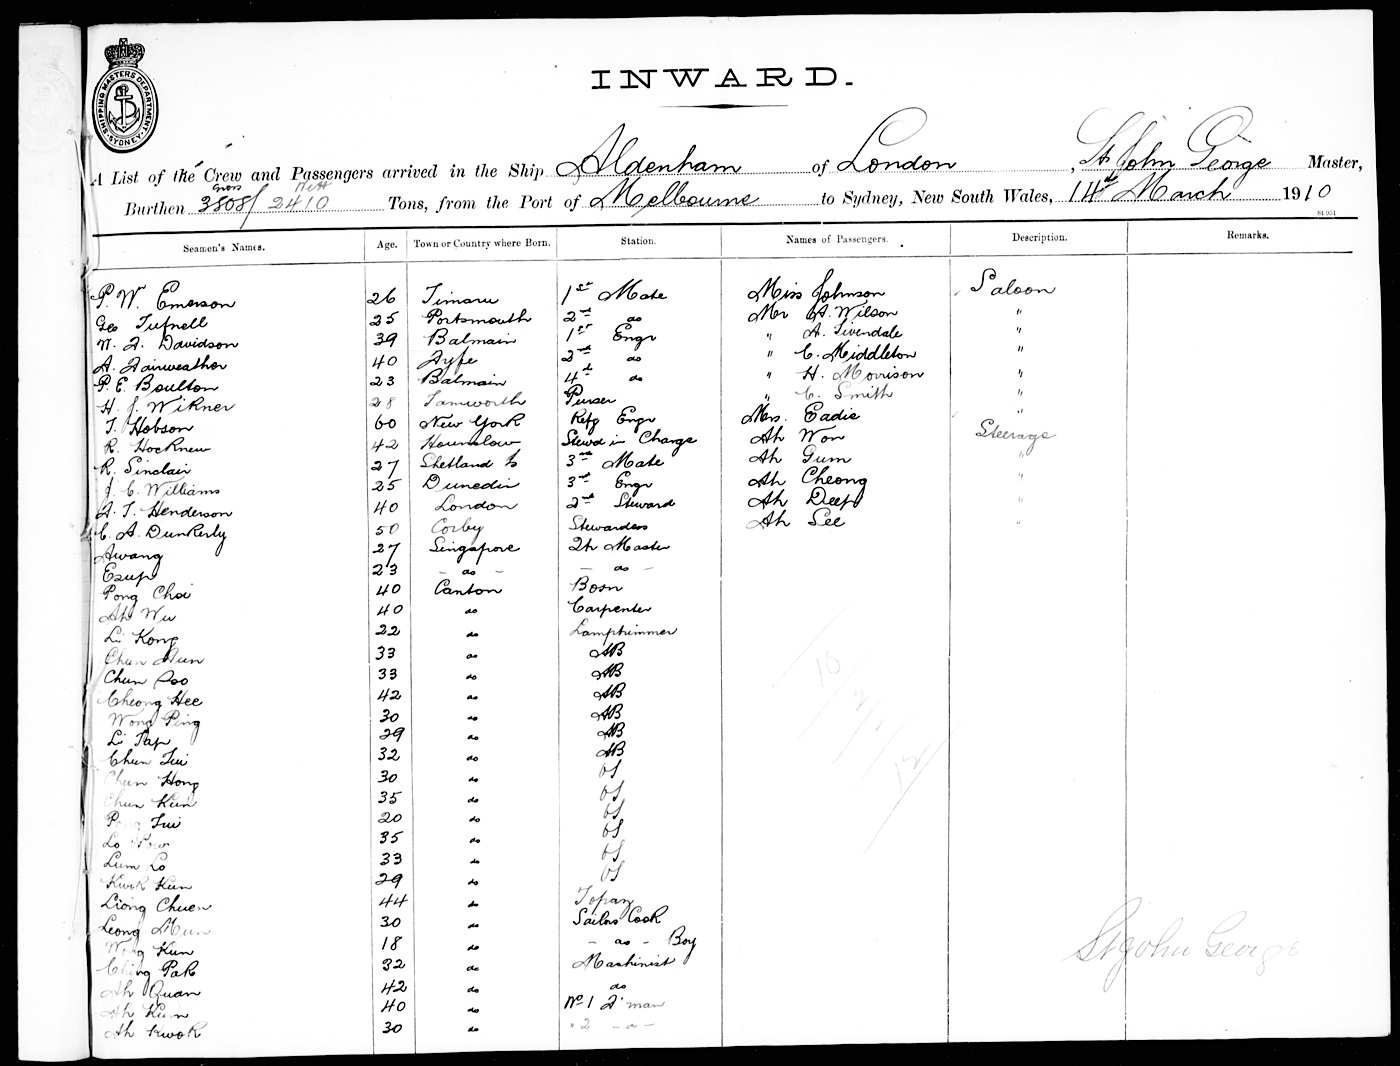 SHIPPING MASTERS DEPARTMENT SYDNEY
INWARD.
A List of the Crew and Passengers arrived in the Ship Aldenham of London, St John George Master,
Burthen 3808 Gross / 2410 Nett Tons, from the Port of Melbourne to Sydney, New South Wales, 14th March 1910
Seamen's Names. Age. Town or Country where Born. Station. Names of Passengers. Description. Remarks.
P. W. Emerson 26 Timaru 1st Mate Miss Johnson Saloon
Geo Tufnell 25 Portsmouth 2nd do Mr A. Wilson "
W. J. Davidson 39 Balmain 1st Engr " A. Tivendale "
A. Fairweather 40 Fyfe 2nd do " C. Middleton "
P. E. Boulton 23 Balmain 4th do " H. Morrison "
H. J. Wikner 28 Tamworth Purser " C. Smith "
T. Hobson 60 New York Refg Engr Mrs. Eadie "
R. Hocknew 42 Hounslow Stewd in Charge Ah Won Steerage
R. Sinclair 27 Shetland Is 3rd Mate Ah Gum "
J. C. Williams 25 Dunedin 3rd Engr Ah Cheong "
A. T. Henderson 40 London 2nd Steward Ah Deep "
C. A. Dunkerly 50 Corby Stewardess Ah See "
Awang 27 Singapore Qr Master
Esup 23 - do - - do -
Pong Choi 40 Canton Bosn
Ah Wu 40 do Carpenter
Li Kong 22 do Lamptrimmer
Chun 33 do AB
Chun 33 do AB
Cheong Hee 42 do AB
Wong Ping 30 do AB
Li Tap 29 do AB
Chun Tui 32 do AB
Chun Hong 30 do OS
Chun Kun 35 do OS
Pong Tui 20 do OS
Lo 35 do OS
Lum Lo 33 do OS
Kwok Kun 29 do OS
Liong Chuen 44 do Topaz
Leong Mun 30 do Sailors Cook
Wong Kun 18 do - do - Boy
Ching Pak 32 do Machinist
Ah Quan 42 do do
Ah Kum 40 do No 1 F'man
Ah Kwok 30 do " 2 - do -
10
2
12
St John George